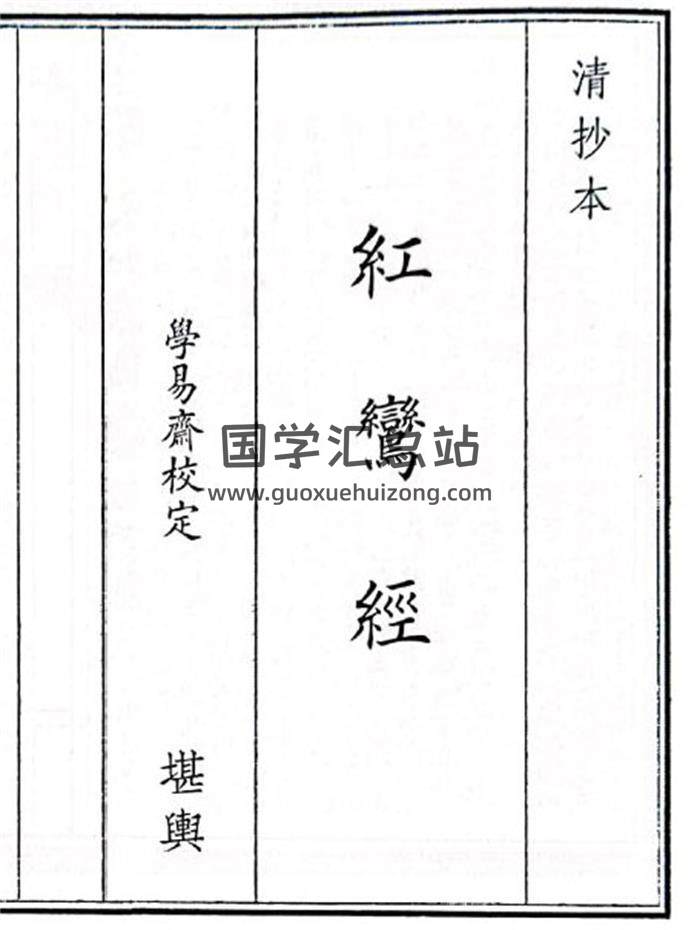 清抄本
紅鸞經
學易齋校定
堪輿
国学汇总站
www.guoxuehuizong.com